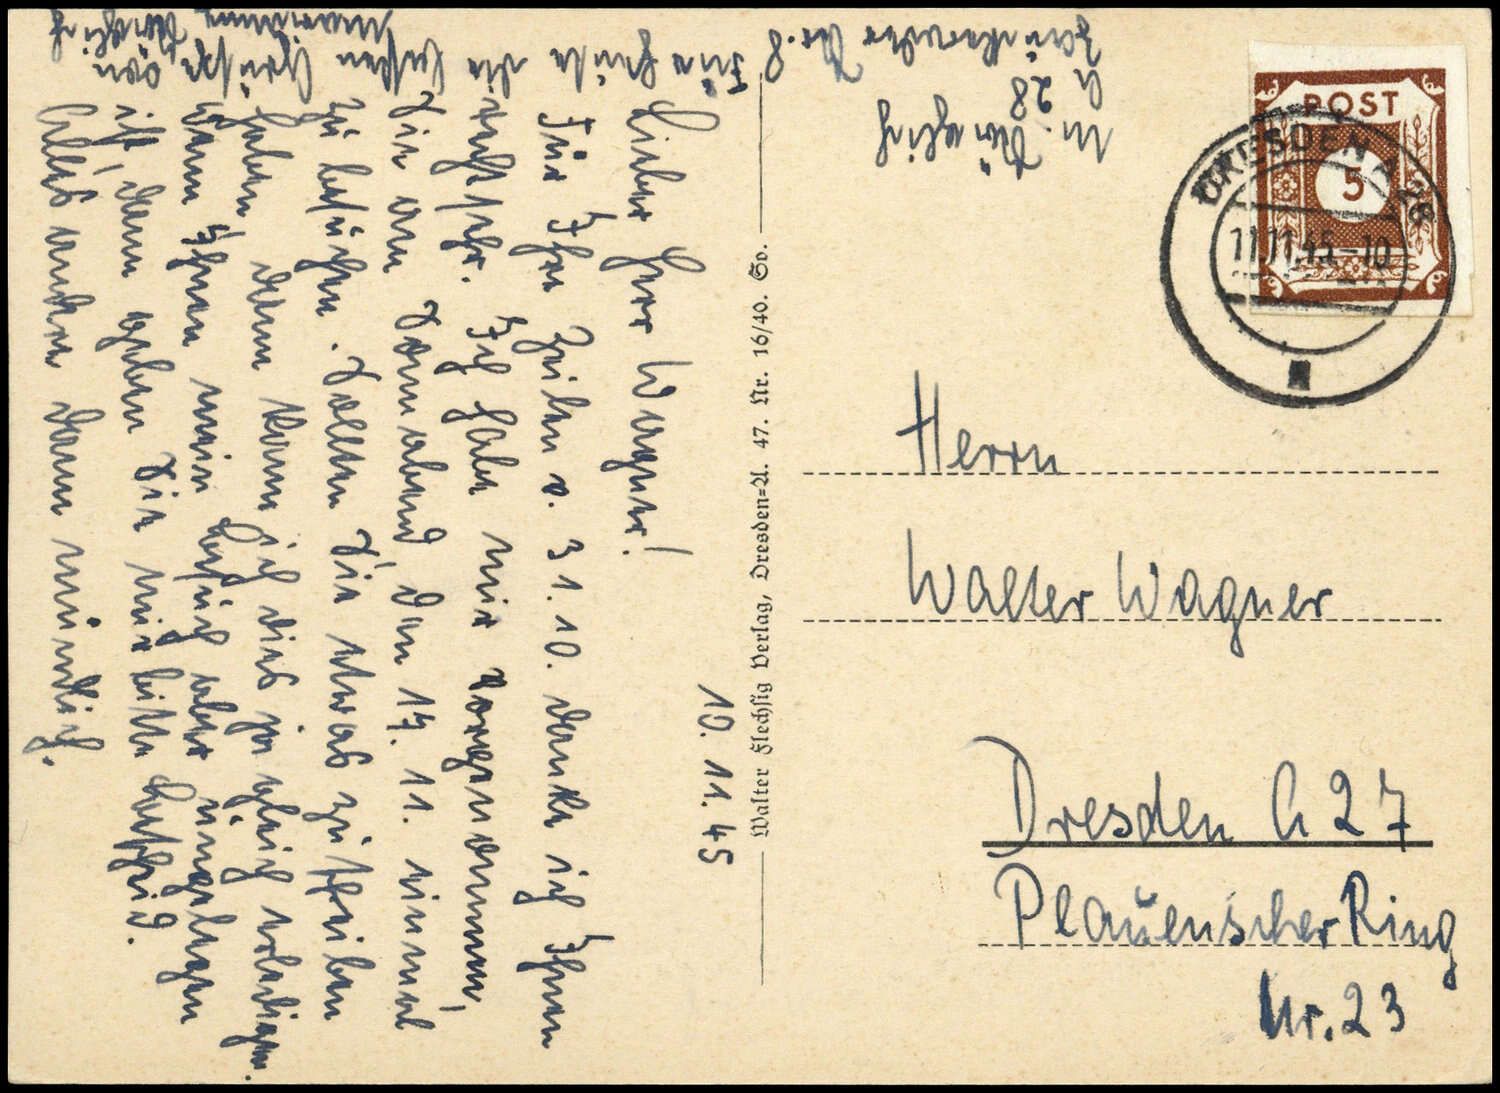 10. 11. 45
Lieber Herr Wagner!
Für Ihre Zeilen v. 31. 10. danke ich Ihnen
recht sehr. Ich habe mir vorgenommen,
Sie am Sonnabend, den 17. 11. einmal
zu besuchen. Sollten Sie etwas zu schreiben
haben, dann kann ich dies ja gleich erledigen.
Wenn Ihnen mein Besuch aber ungelegen
ist, dann geben Sie mir bitte Bescheid.
Alles andere dann mündlich.
Für heute die besten Grüße von
A 28
Nr. 8
POST
5
DRESDEN A 28
11.11.45.-10
Herrn
Walter Wagner
Dresden A 27
Plauenscher Ring
Nr. 23
Walter Flechsig Verlag, Dresden=A. 47. Nr. 16/40. Go.